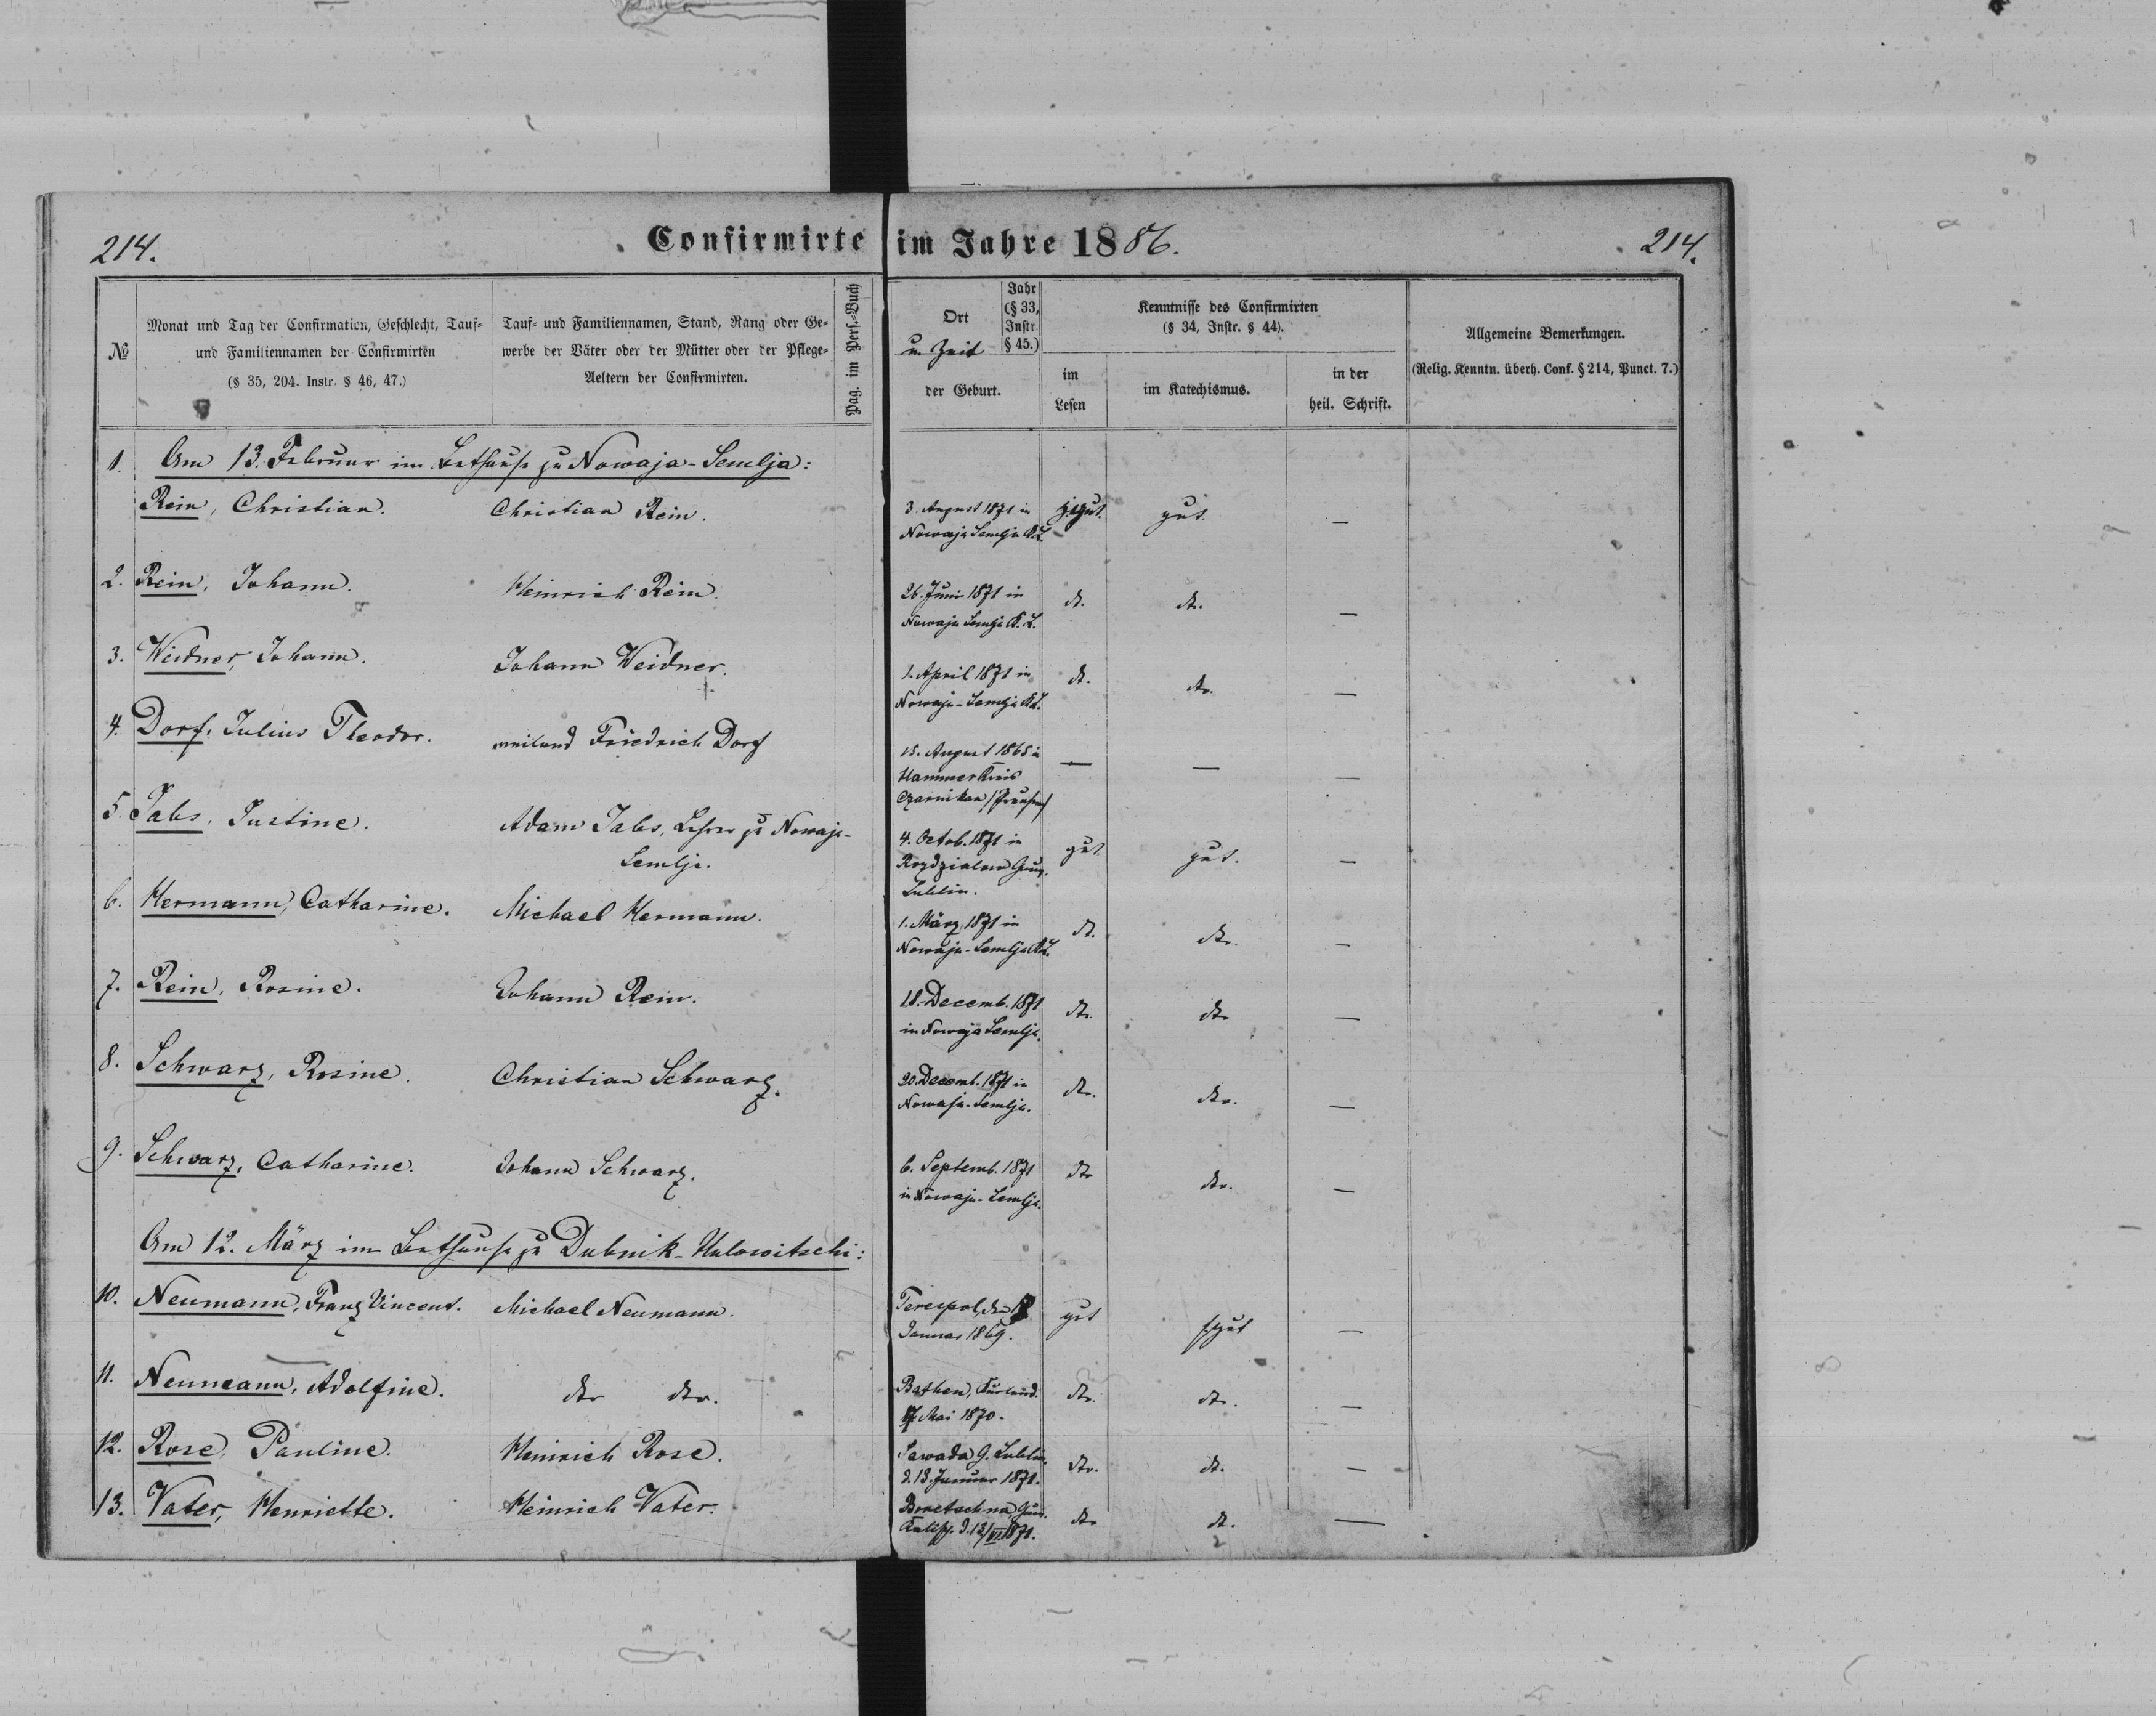 214.
Confirmirte im Jahre 1886.
214.
№
Monat und Tag der Confirmation, Geschlecht, Tauf-
und Familiennamen der Confirmirten
(§ 35, 204. Instr. § 46, 47.)
Tauf- und Familiennamen, Stand, Rang oder Ge-
werbe der Väter oder der Mütter oder der Pflege-
Aeltern der Confirmirten.
Pag. im Pers.-Buch
Ort
u. Zeit
der Geburt.
Jahr
(§ 33,
Instr.
§ 45.)
Kenntnisse des Confirmirten
(§ 34, Instr. § 44).
im
Lesen
im Katechismus.
in der
heil. Schrift.
Allgemeine Bemerkungen.
(Relig. Kenntn. überh. Conf. § 214, Punct. 7.)
Am 13. Februar im Bethause zu Nowaja-Semlja:
1. Rein, Christian. Christian Rein. 3. August 1871 in gut. —
Nowaja Semlja K.L.
2. Rein, Johann. Heinrich Rein. 26. Juni 1871 in dt. dto. —
Nowaja Semlja K.L.
3. Weidner, Johann. Johann Weidner. 1. April 1871 in dt. dto. —
Nowaja-Semlja K.L.
4. Dorf, Julius Theodor. weiland Friedrich Dorf 15. August 1865 in — — —
Hammer Kreis
Czarnikau /Preussen/
5. Jabs, Justine. Adam Jabs, Lehrer zu Nowaja- 4. Octob. 1871 in gut gut. —
Semlja. Gouv.
Lublin.
6. Hermann, Catharine. Michael Hermann. 1. März 1871 in dt. dto. —
Nowaja-Semlja K.L.
7. Rein, Rosine. Johann Rein. 18. Decemb. 1871 dto. dto —
in Nowaja Semlja.
8. Schwarz, Rosine. Christian Schwarz. 20. Decemb. 1871 in dto. dto. —
Nowaja-Semlja.
9. Schwarz, Catharine. Johann Schwarz. 6. Septemb. 1871 dto dto. —
in Nowaja-Semlja.
Am 12. März im Bethause zu Dubnik-Hulowitschi:
10. Neumann, Franz Vincent. Michael Neumann. Terespol, den gut —
Januar 1869.
11. Neumann, Adolfine. dto dto. Bathen, Kurland. dto. dto. —
17. Mai 1870.
12. Rose, Pauline. Heinrich Rose. Sawada G. Lublin, dto. dt. —
d. 13. Januar 1871.
13. Vater, Henriette. Heinrich Vater. Gouv. dto dt. —
Kalisch d. 12/VI 1871.